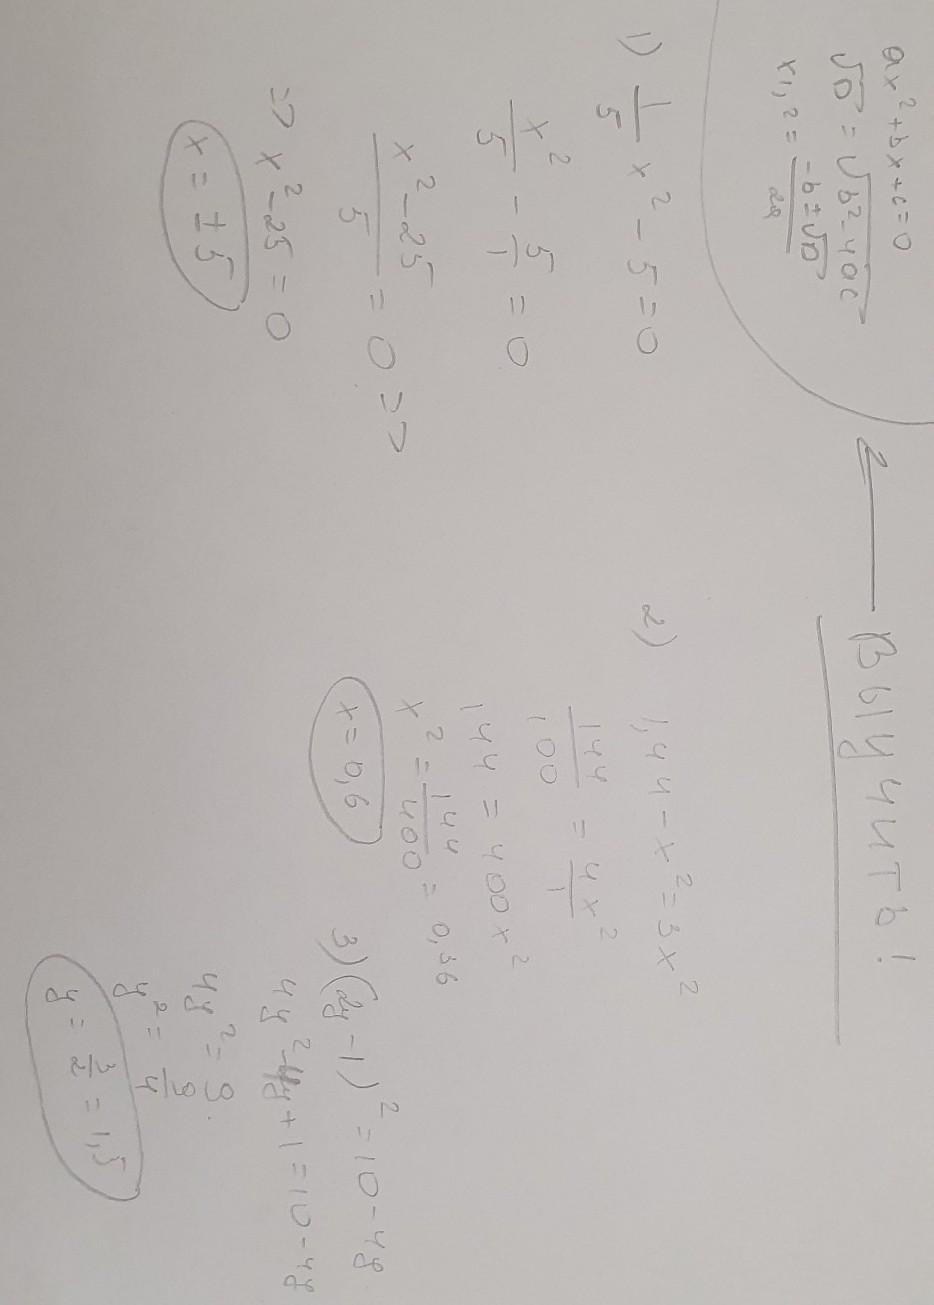 ax² + bx + c = 0
√D = √b² - 4ac
x1,2 = -b ± √D / 2a
Выучить!
1) 1/5 x² - 5 = 0
x²/5 - 5/1 = 0
x² - 25 / 5 = 0 =>
=> x² - 25 = 0
x = ± 5
2) 1,44 - x² = 3x²
144/100 = 4x²/1
144 = 400x²
x² = 144/400 = 0,36
x = 0,6
3) (2y - 1)² = 10 - 4y
4y² - 4y + 1 = 10 - 4y
4y² = 9.
y² = 9/4
y = 3/2 = 1,5